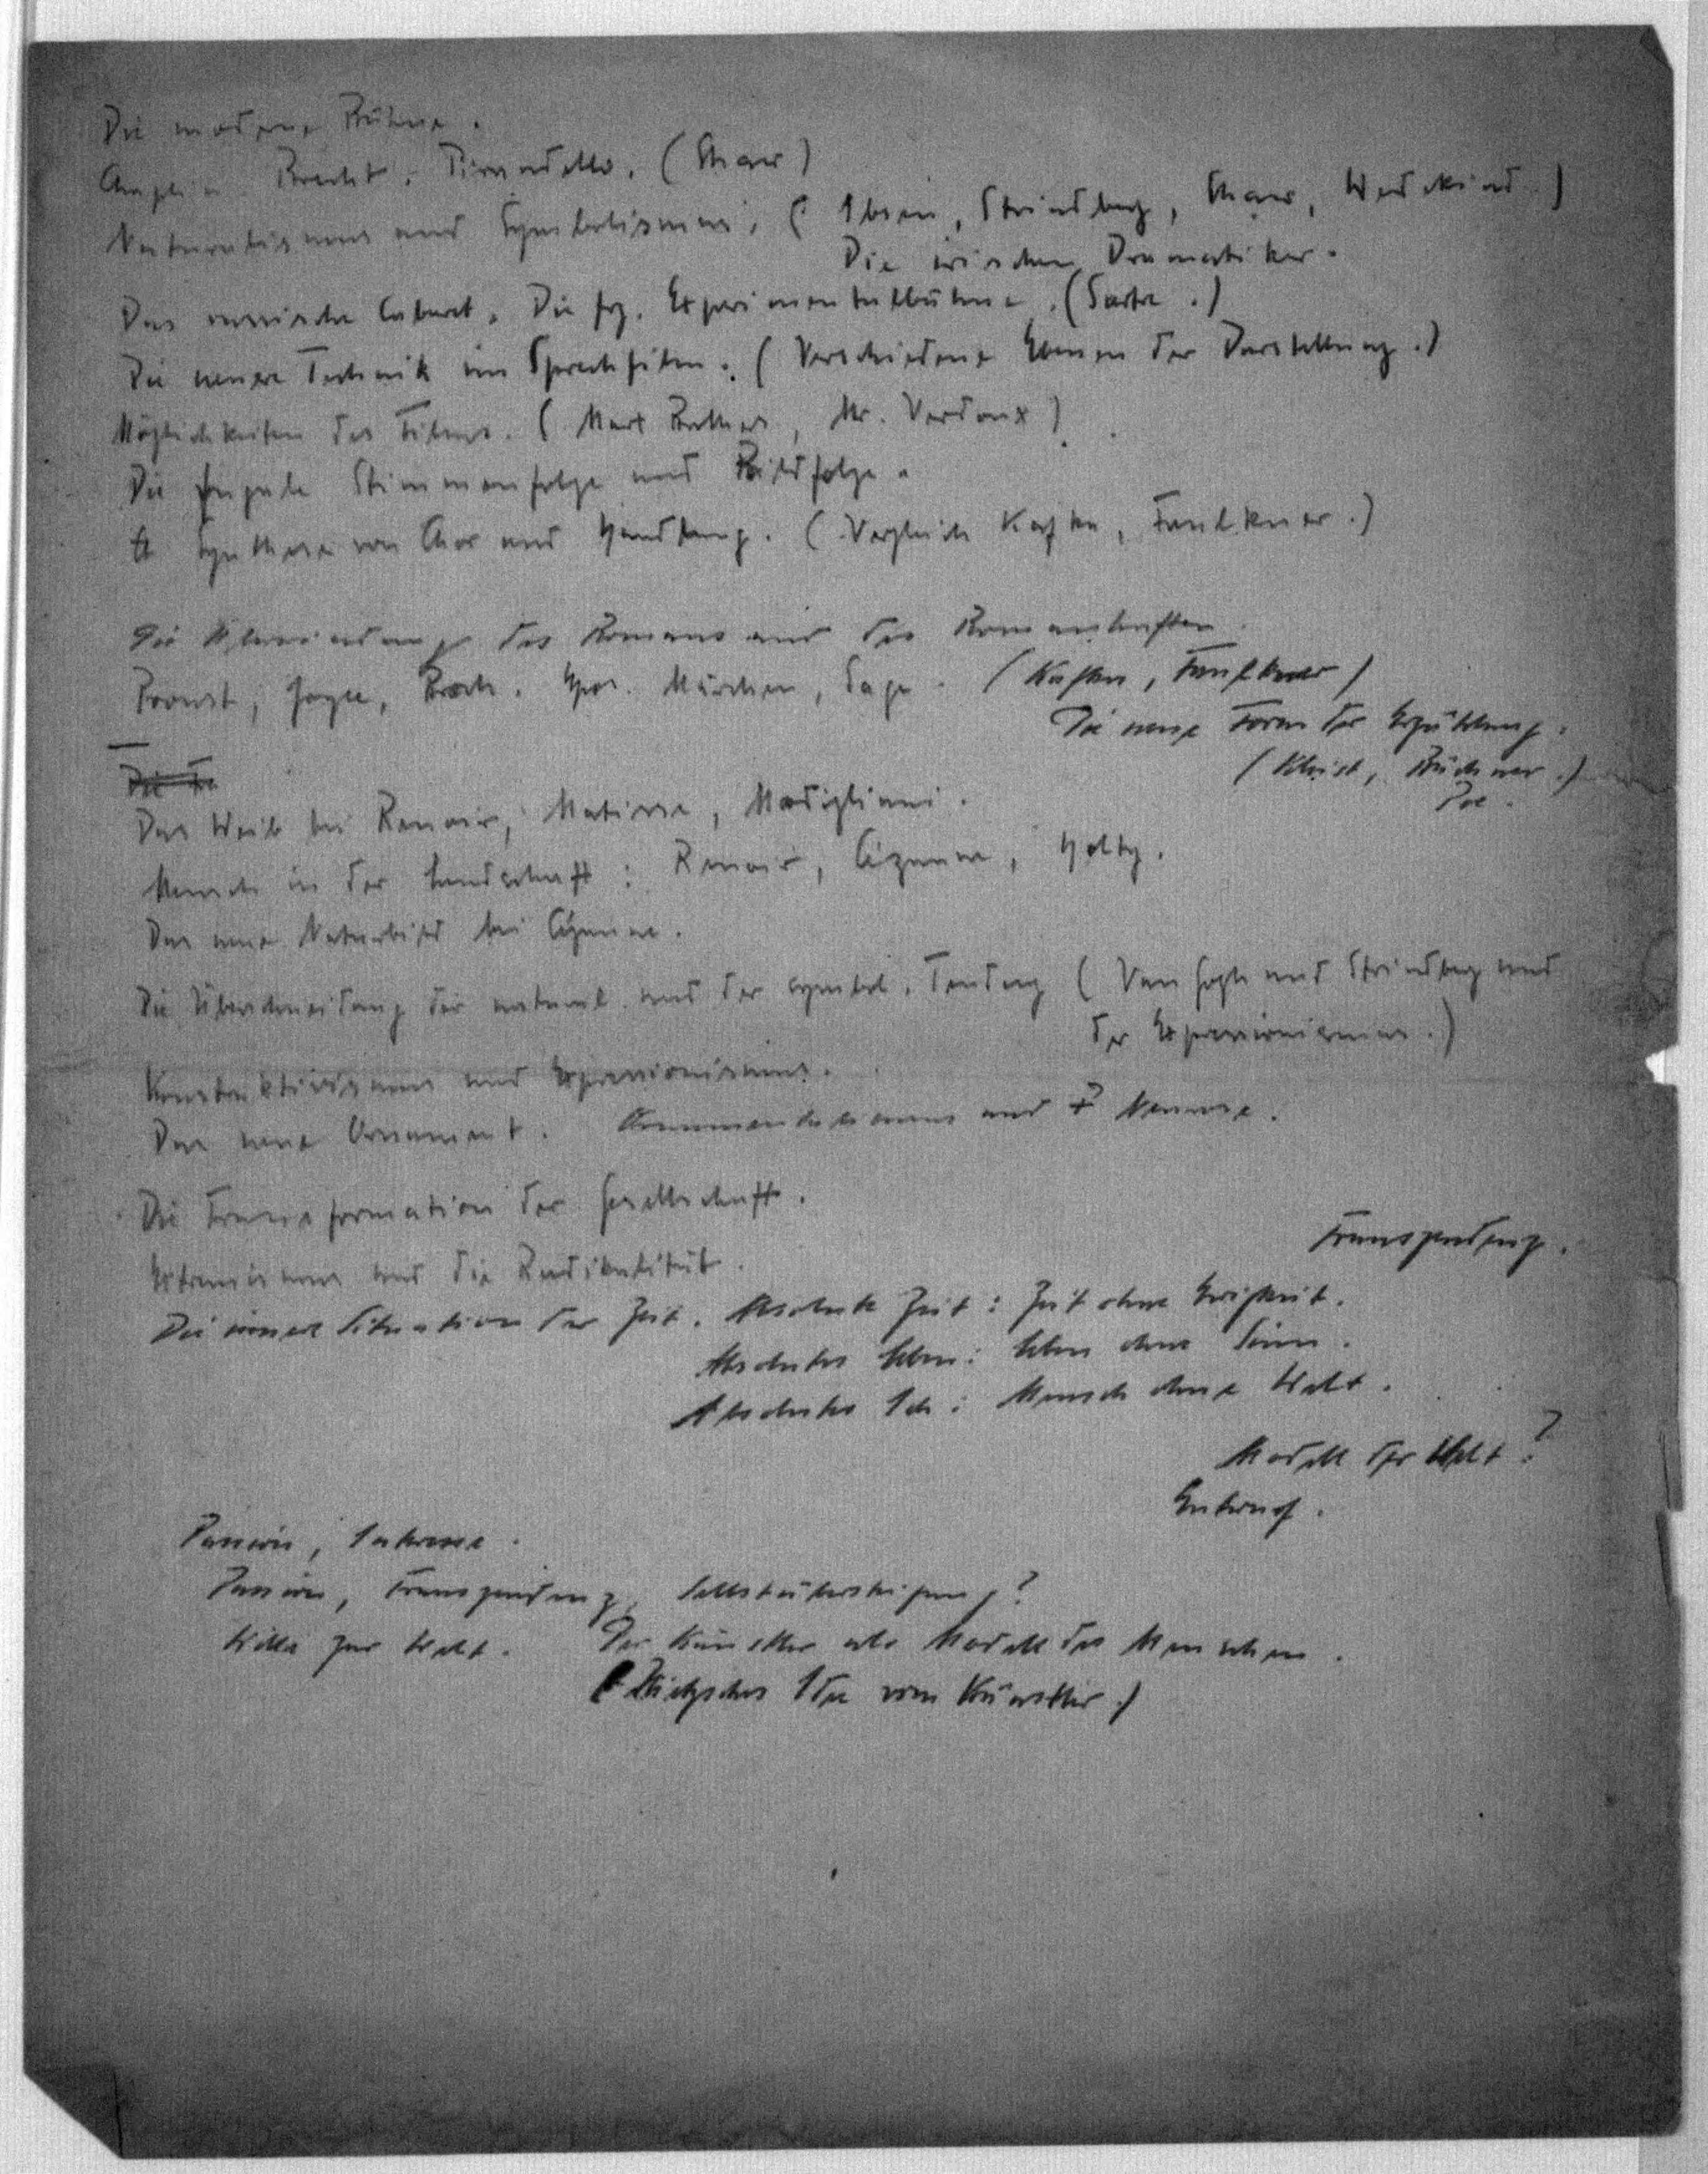 Die moderne Bühne.
Chaplin. Brecht, Pirandello. (Shaw)
Naturalismus und Symbolismus. (Ibsen, Strindberg, Shaw, Wedekind)
Die irischen Dramatiker.
Das russische Cabaret. Die frz. Experimentalbühne. (Sartre.)
Die neuere Technik im Sprechfilm. (Verschiedene Ebenen der Darstellung.)
Möglichkeiten des Films. (Marx Brothers, Mr. Verdoux)
Die Stimmenfolge und Bildfolge.
Synthese von Chor und Handlung. (Vergleich Kafka, Faulkner.)
Die Überwindung des Romans und des Romanhaften.
Proust, Joyce, Broch. Epos. Märchen, Sage. (Kafka, Faulkner)
Die neue Form der Erzählung.
(Kleist, Büchner.)
Poe.
Das Weib bei Renoir, Matisse, Modigliani.
Mensch in der Landschaft: Renoir, Cézanne,
Das neue Naturbild bei Cézanne.
Die Überschneidung der natural. und der symbol. Tendenz (Van Gogh und Strindberg und
der Expressionismus.)
Konstruktivismus und Expressionismus.
Das neue Ornament. und
Die Transformation der Gesellschaft.
Transzendenz.
Extremismus und die Radikalität.
Die innere Situation der Zeit. Absolute Zeit: Zeit ohne Ewigkeit.
Absolutes Leben: Leben ohne Sinn.
Absolutes Ich: Mensch ohne Welt.
Modell der Welt?
Entwurf.
Passion, Interesse.
Passion, Transzendenz, Selbstübersteigung?
Wille zur Welt. Der Künstler als Modell des Menschen.
(Nietzsches Idee vom Künstler.)